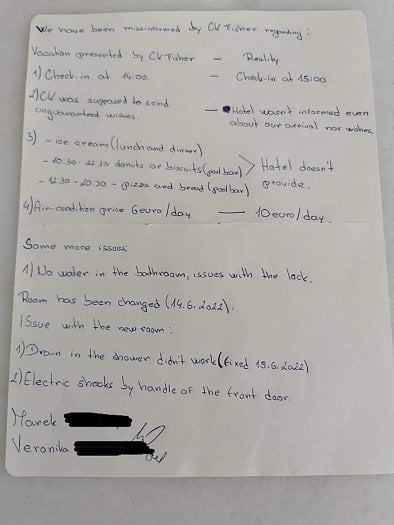 We have been missinformed by CK Fisher regarding:
Vacation presented by CK Fisher — Reality
1) Check-in at 14:00 — Check-in at 15:00
2) CK was supposed to send unguaranteed wishes. — Hotel wasn't informed even about our arrival nor wishes.
3) - ice cream (lunch and dinner)
- 10:30 - 22:30 donuts or biscuits (pool bar) > Hotel doesn't provide.
- 12:30 - 20:30 - pizza and bread (pool bar)
4) Air-condition price 6euro/day — 10euro/day.
Some more issues:
1) No water in the bathroom, issues with the lock.
Room has been changed (14.6.2022).
ISsue with the new room:
1) Drain in the shower didn't work (fixed 15.6.2022)
2) Electric shocks by handle of the front door.
Marek
Veronika